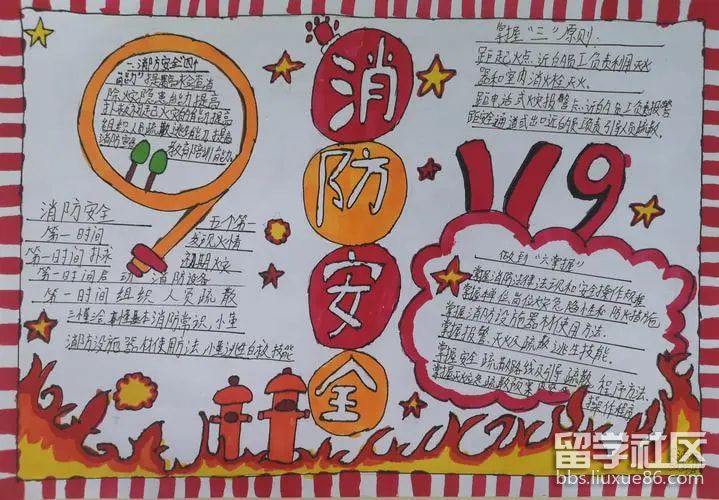 消防安全
一.消防安全"四个
能力"提
除火灾隐患能力提高
扑救初起火灾能力提高
组织人员疏散逃生能力提高
消防宣 教育培训能力。
消防安全 五个第一
第一时间 发现火情
第一时间扑求 初期火灾
第一时间启动 消防设备
第一时间组织人员疏散
三懂 消防常识,小
消防设施器材使用方法,小 自救技能
掌握"三一"原则.
距起火点近的员工负责利用灭火
器和室内消火栓灭火。
距电话或火灾报警 近的员工负责报警
距安全通道或出口近的员工负责引导人员疏散。
119
做到"六掌握"
掌握消防法律法规和安全操作规程
掌握 岗位火灾危险性和防火措施
掌握消防设施器材使用方法。
掌握报警、灭火及疏散逃生技能。
掌握安全疏散路线及引导疏散程序方法.
掌握 疏散预案 操作程序
留学社区
bbs.liuxue86.com